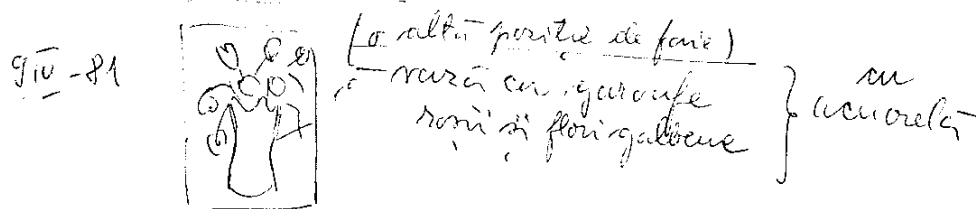 9 IV -81
(o altă poziție de foaie)
vază cu garoafe
roșii și flori galbene
cu
acuarelă